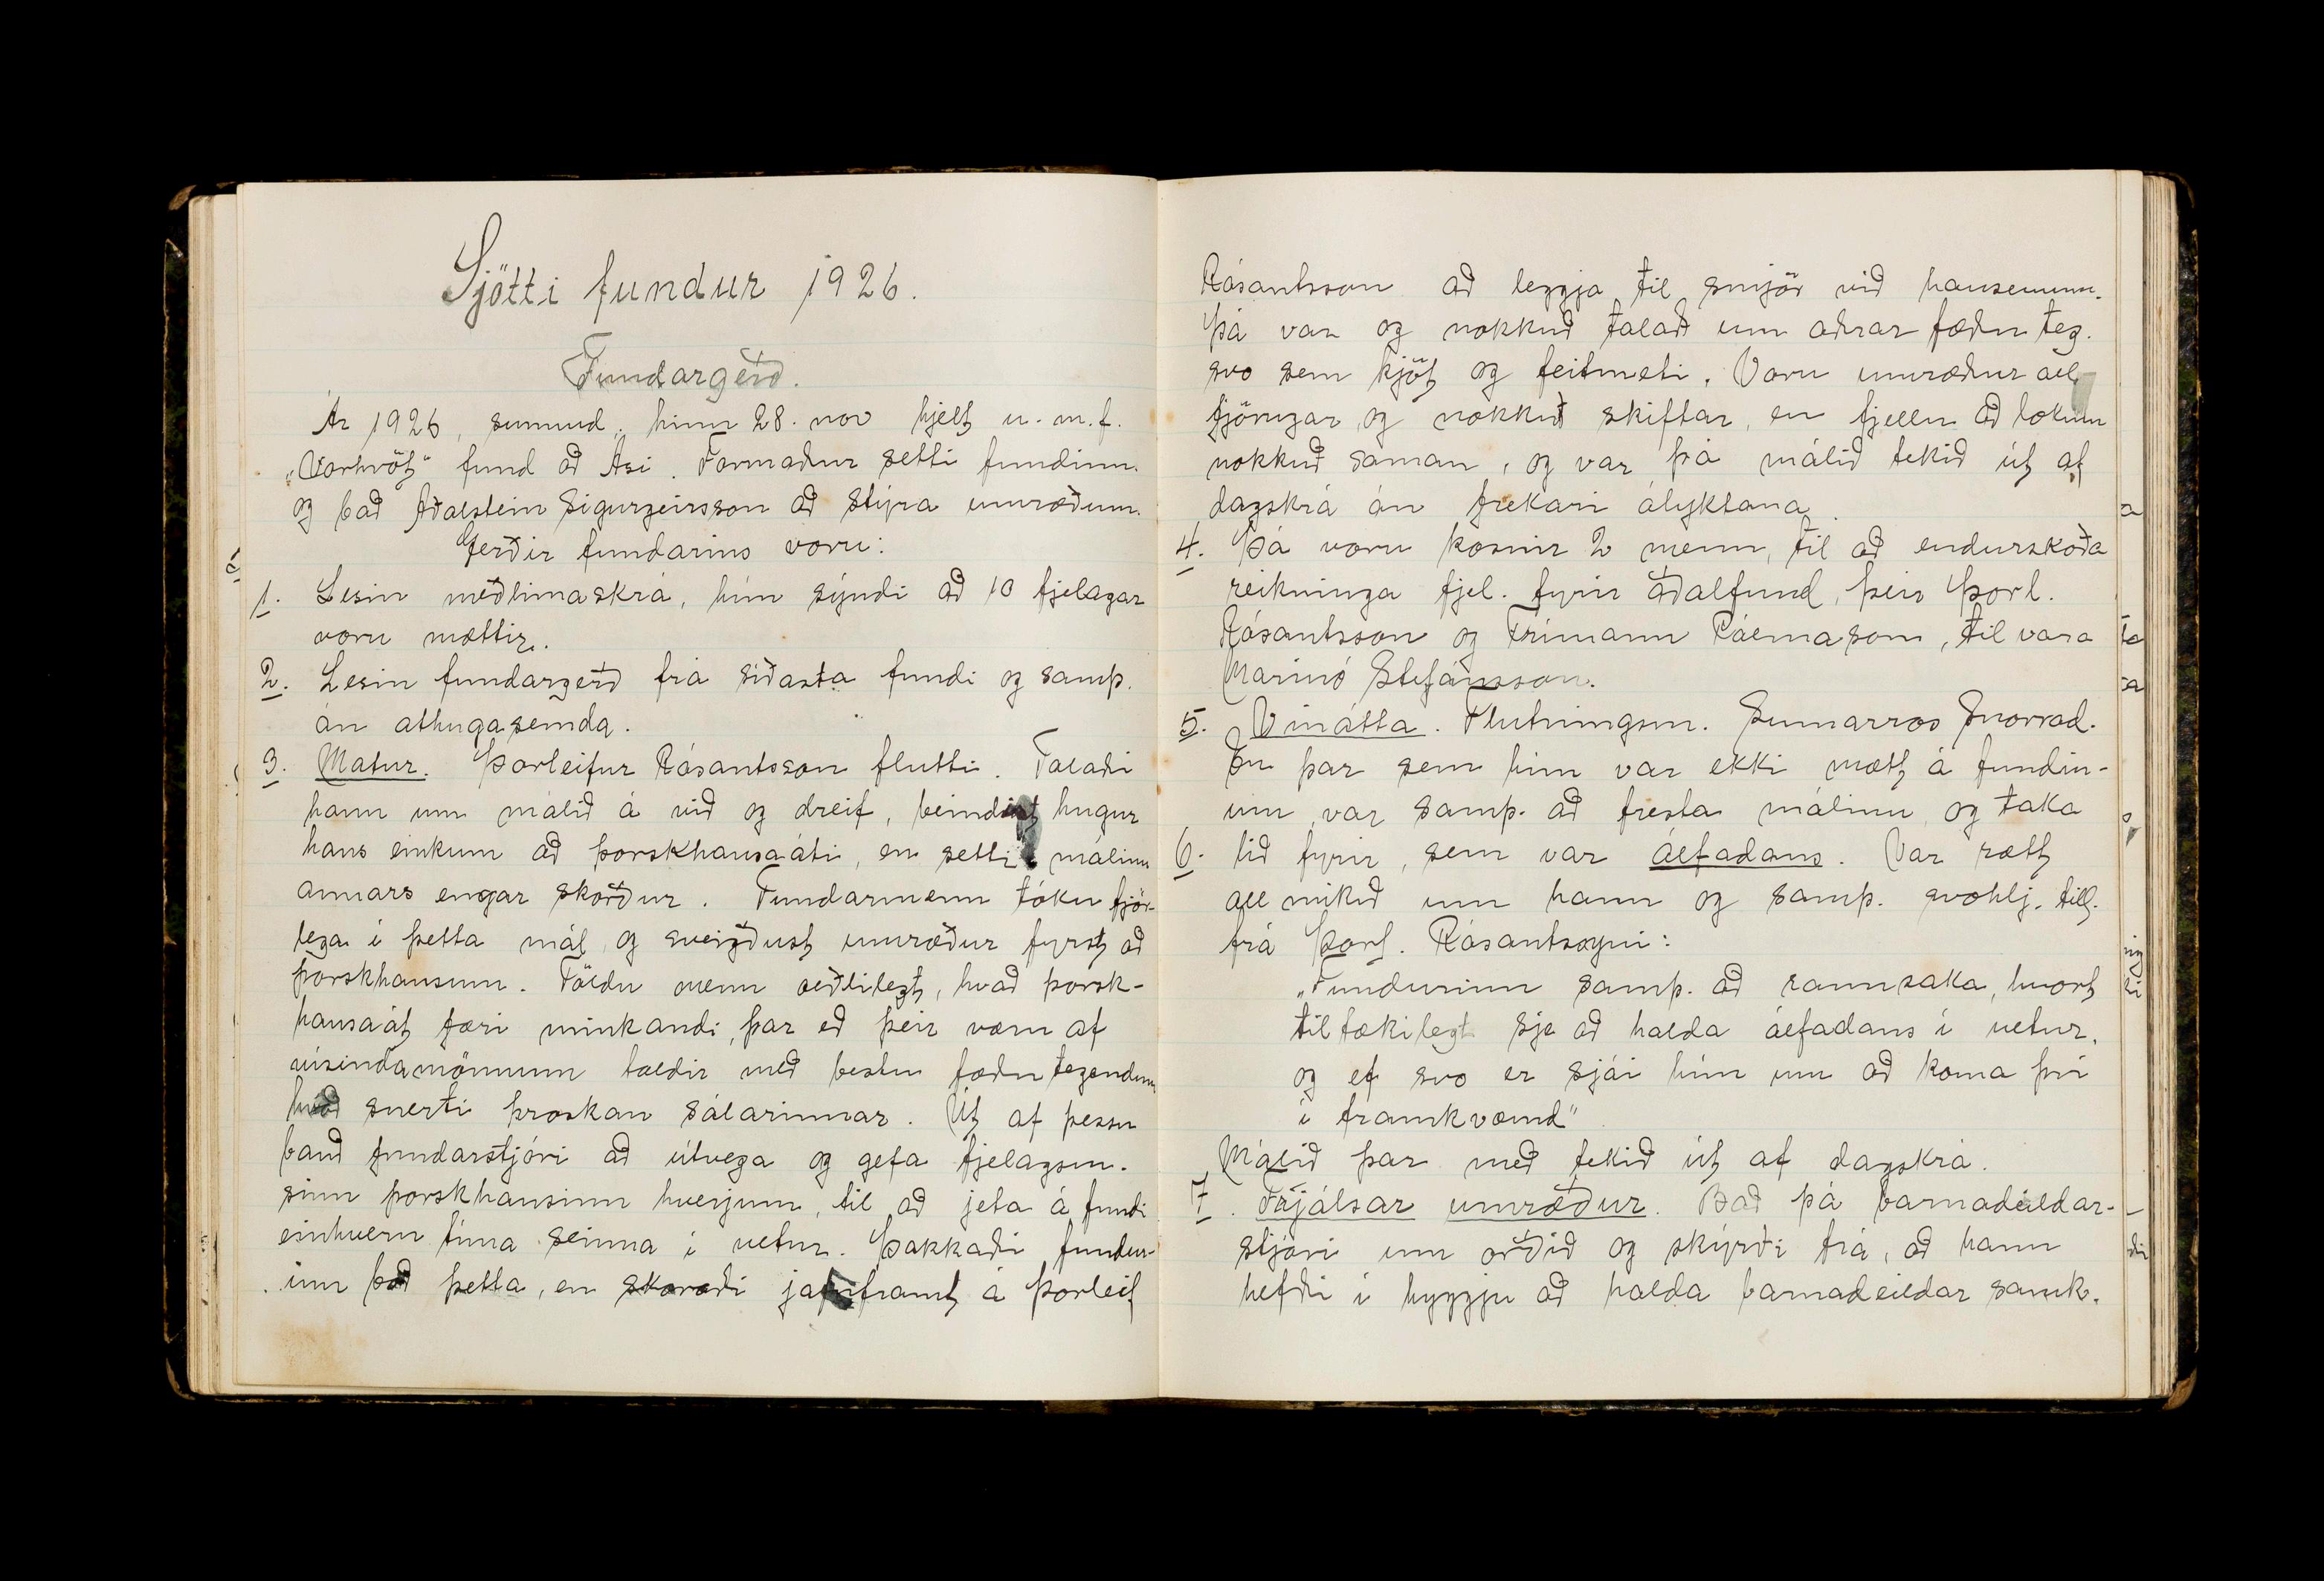 Sjötti fundur 1926.
Fundargerð.
Ár 1926, sunnud. hinn 28. nov hjelt u. m. f.
„Vorhvöt" fund að Ási. Formaður setti fundinn
og bað Aðalstein Sigurgeirsson að stýra umræðum.
Gerðir fundarins voru:
1. Lesin meðlimaskrá, hún sýndi að 10 fjelagar
voru mættir.
2. Lesin fundargerð frá síðasta fundi og samþ.
án athugasemda.
3. Matur. Þorleifur Rósantsson flutti. Talaði
hann um málið á víð og dreif, beindist hugur
hans einkum að þorskhausaáti, en setti málinu
annars engar skorður. Fundarmenn tóku fjör-
lega í þetta mál, og sveigðust umræður fyrst að
þorskhausum. Töldu menn óeðlilegt, hvað þorsk-
hausaát færi minkandi, þar eð þeir væru af
vísindamönnum taldir með bestu fæðutegundum
hvað snerti þroskan sálarinnar. Út af þessu
bauð fundarstjóri að útvega og gefa fjelagsm.
sinn þorskhausinn hverjum, til að jeta á fundi
einhvern tíma seinna í vetur. Þakkaði fundur-
inn boð þetta, en skoraði jafnframt á Þorleif
Rósantsson að leggja til smjör við hausunum.
Þá var og nokkuð talað um aðrar fæðu teg.
svo sem kjöt og feitmeti. Voru umræður all
fjörugar og nokkuð skiftar, en fjellu að lokum
nokkuð saman, og var þá málið tekið út af
dagskrá án frekari ályktana.
4. Þá voru kosnir 2 menn, til að endurskoða
reikninga fjel. fyrir aðalfund, þeir Þorl.
Rósantsson og Frímann Pálmason, til vara
Marinó Stefánsson.
5. Vinátta. Flutningsm. Sumarros Snorrad.
En þar sem hún var ekki mætt á fundin-
um, var samþ. að fresta málinu og taka
6. lið fyrir, sem var álfadans. Var rætt
all mikið um hann og samþ. svohlj. till.
frá Þorl. Rósantssyni:
„Fundurinn samþ. að rannsaka, hvort
tiltækilegt sje að halda álfadans í vetur,
og ef svo er sjái hún um að koma því
í framkvæmd"
Málið þar með tekið út af dagskrá.
7. Frjálsar umræður. Bað þá barnadeildar-
stjóri um orðið og skýrði frá, að hann
hefði í hyggju að halda barnadeildar samk.